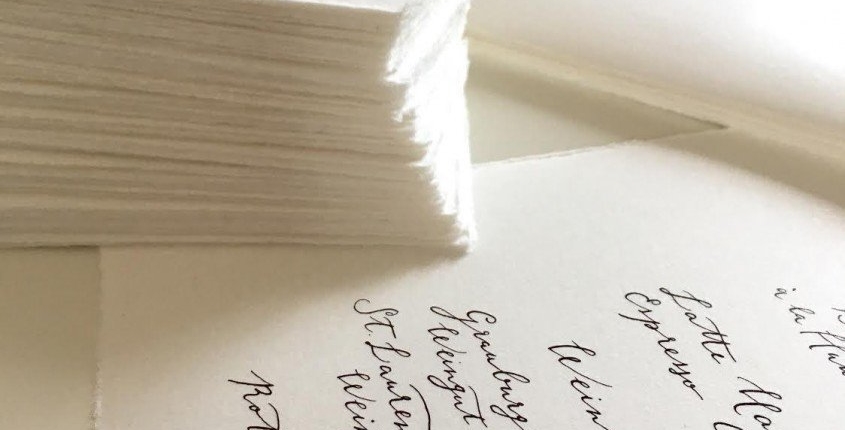 à la Flam
Latte Ma
Espresso
Wein
Grauburg
Weingut
St. Lauren
Wei
Rot